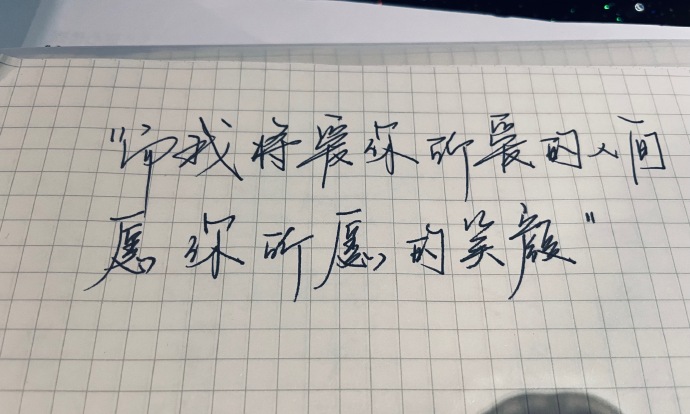 "而我将爱你所爱的人间
愿你所愿的笑颜"